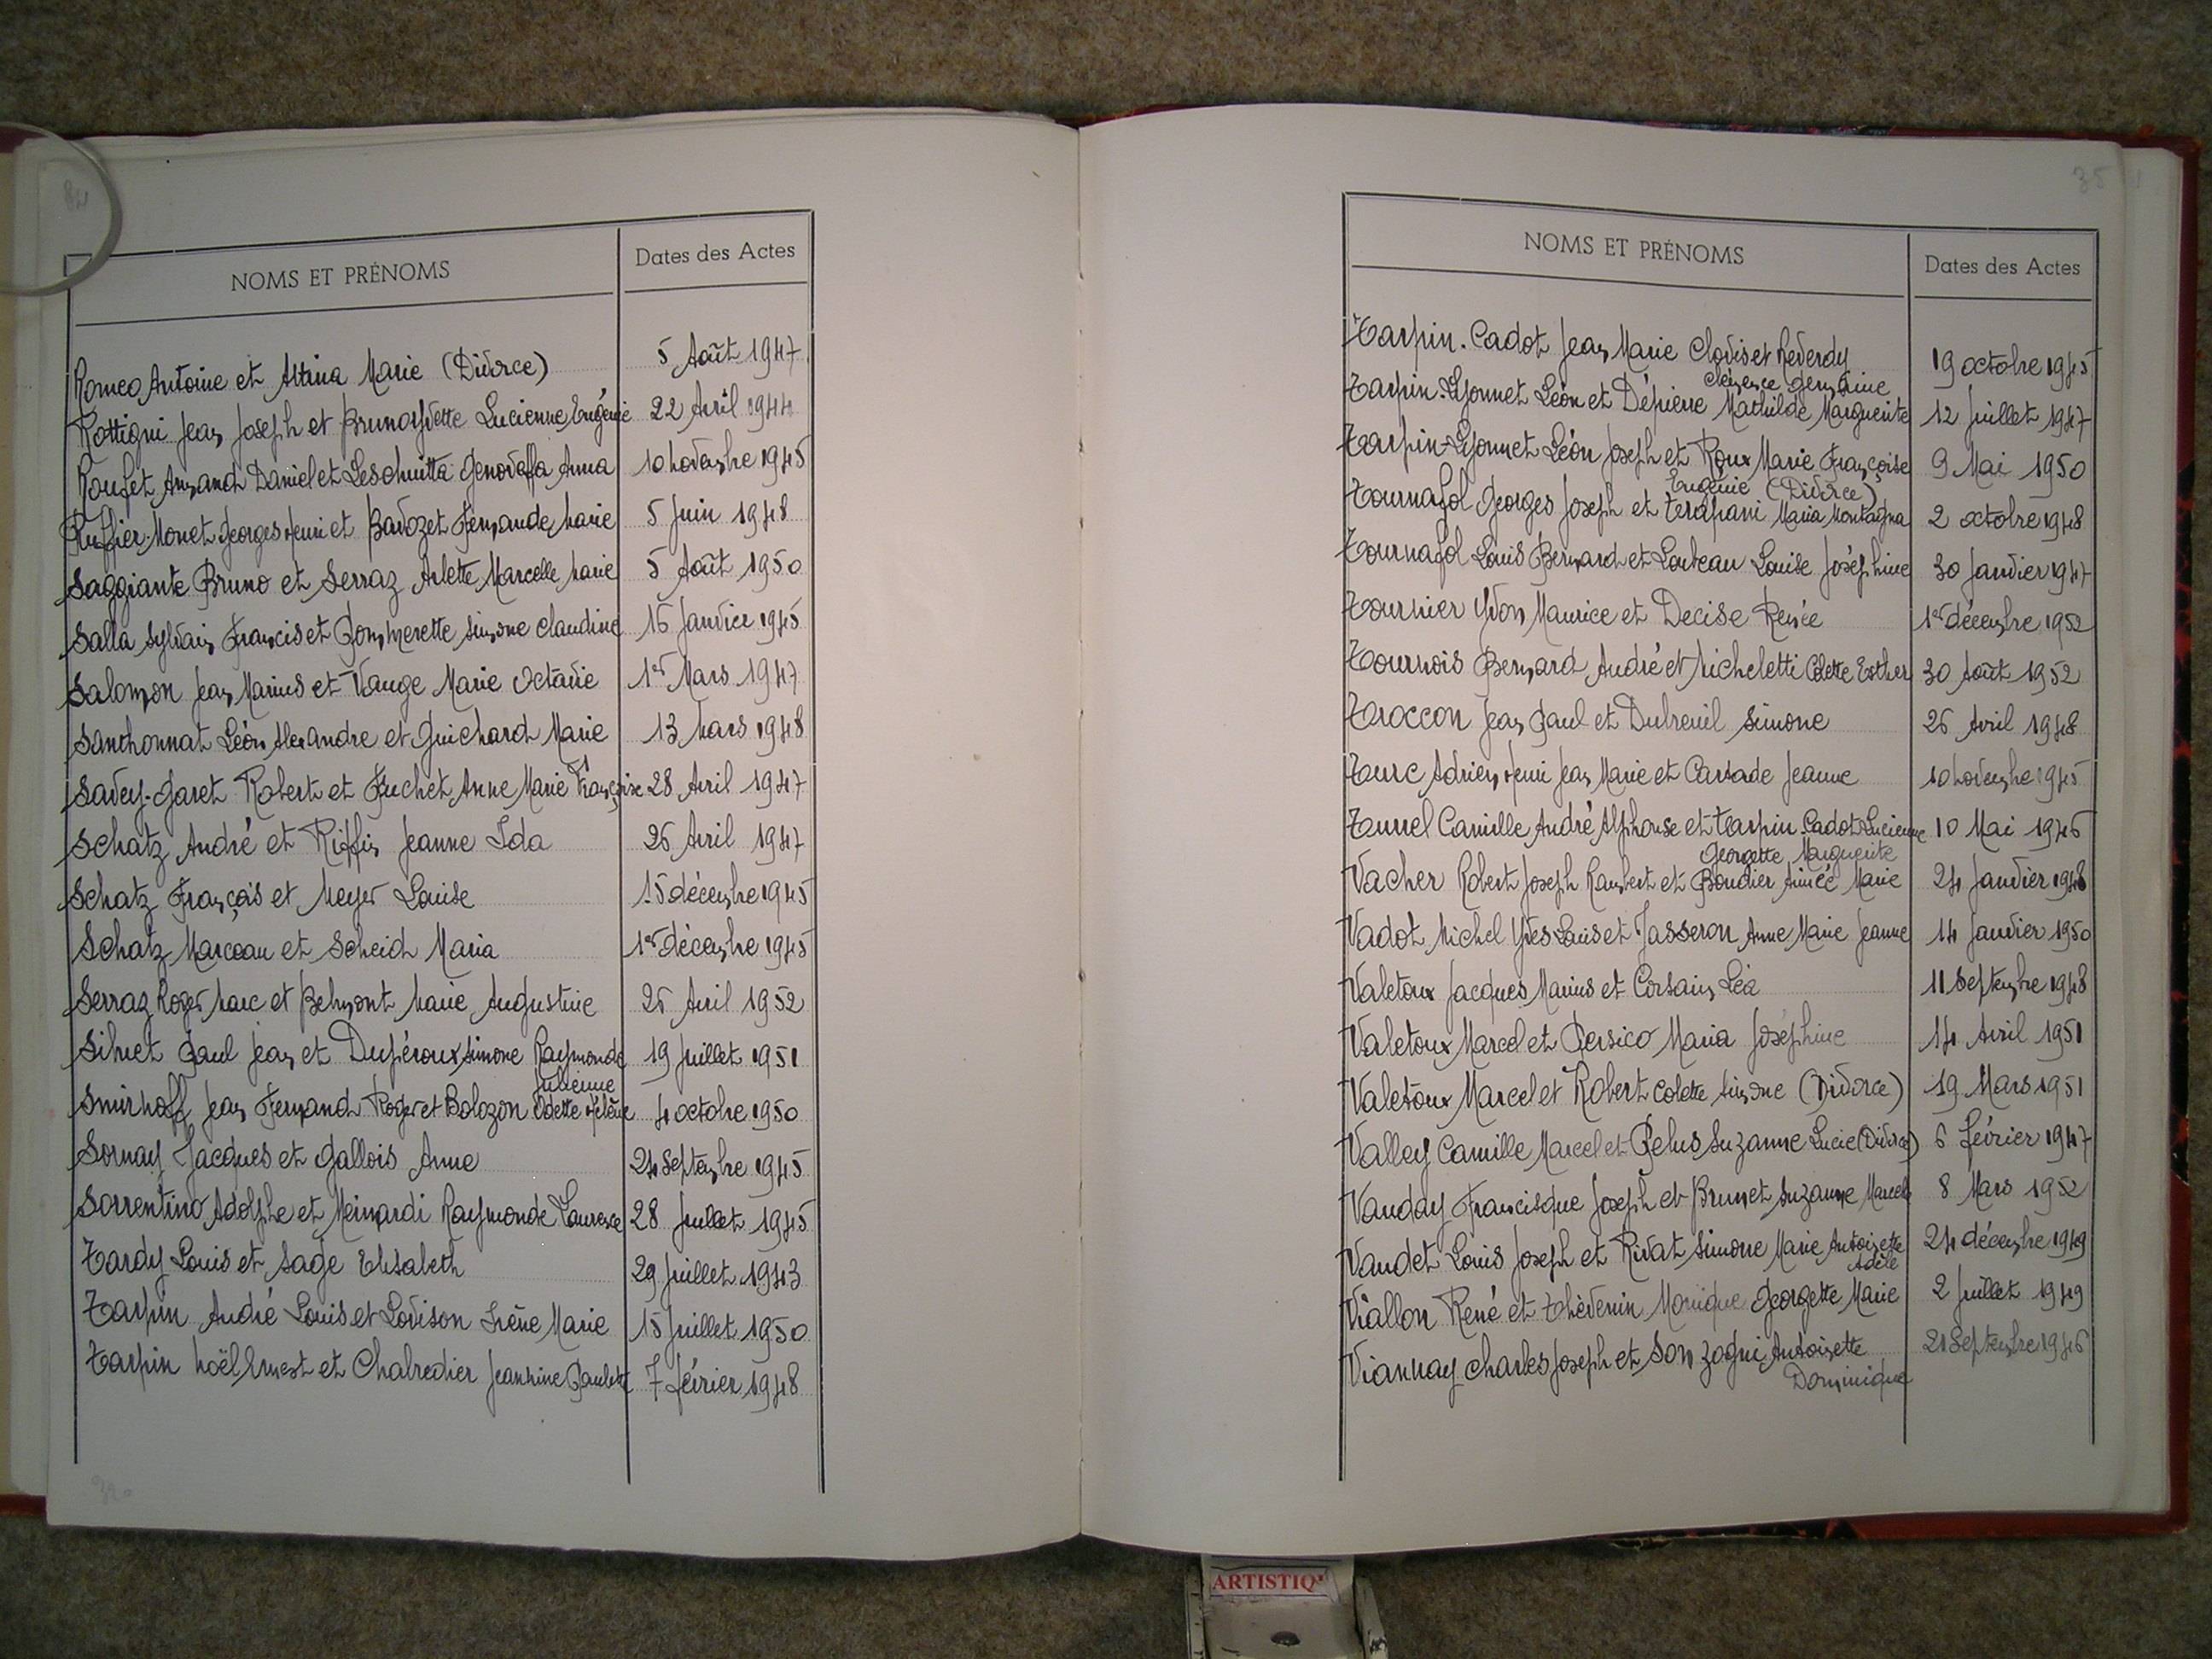 NOMS ET PRÉNOMS
Dates des Actes
Romeo Antoine et Attina Marie (Divorce) 5 Août 1947
Rottigni Jean Joseph et Brunod Yvette Lucienne Eugénie 22 Avril 1944
Roufet Armand Daniel et Leschuitta Genoveffa Anna 10 Novembre 1945
Ruffier-Monet Georges Henri et Bavozet Fernande Marie 5 Juin 1948
Saggiante Bruno et Serraz Arlette Marcelle Marie 5 Août 1950
Salla Sylvain Francis et Pommerette Simone Claudine 16 Janvier 1945
Salomon Jean Marius et Vauge Marie Octavie 1er Mars 1947
Santhonnat Léon Alexandre et Guichard Marie 13 Mars 1948
Savey-Garet Robert et Fuchet Anne Marie Françoise 28 Avril 1947
Schatz André et Riffis Jeanne Ida 26 Avril 1947
Schatz François et Meyer Louise 15 décembre 1945
Schatz Marceau et Scheid Maria 1er décembre 1945
Serraz Roger Marc et Belmont Marie Augustine 26 Avril 1952
Silvet Paul Jean et Dupéroux Simone Raymonde 19 Juillet 1951
Julienne
Smirnoff Jean Fernand Roger et Bolozon Odette Hélène 4 octobre 1950
Sornay Jacques et Gallois Anne 24 Septembre 1945
Sorrentino Adolphe et Meinardi Raymonde Laurence 28 Juillet 1945
Tardy Louis et Sage Elisabeth 29 Juillet 1943
Tarpin André Louis et Lovison Irène Marie 15 Juillet 1950
Tarpin Noël Ernest et Chabredier Jeannine Paulette 7 février 1948
35
NOMS ET PRÉNOMS
Dates des Actes
Tarpin-Cadot Jean Marie Clovis et Reverdy 19 octobre 1945
Clémence Germaine
Tarpin-Lyonnet Léon et Dépierre Mathilde Marguerite 12 Juillet 1947
Tarpin-Lyonnet Léon Joseph et Roux Marie Françoise 9 Mai 1950
Eugénie (Divorce)
Tournafol Georges Joseph et Trapani Maria Montagna 2 octobre 1948
Tournafol Louis Bernard et Louteau Louise Joséphine 30 Janvier 1947
Tournier Yvon Maurice et Decise Renée 1er décembre 1952
Tournois Bernard André et Micheletti Colette Esther 30 Août 1952
Troccon Jean Paul et Dubreuil Simone 26 Avril 1948
Turc Adrien Henri Jean Marie et Cartade Jeanne 10 Novembre 1945
Turrel Camille André Alphonse et Tarpin-Cadot Lucienne 10 Mai 1946
Georgette Marguerite
Vacher Robert Joseph Rambert et Boudier Aimée Marie 24 Janvier 1948
Vadot Michel Yves Louis et Jasseron Anne Marie Jeanne 14 Janvier 1950
Valetoux Jacques Marius et Corsain Léa 11 Septembre 1948
Valetoux Marcel et Persico Maria Joséphine 14 Avril 1951
Valetoux Marcel et Robert Colette Simone (Divorce) 19 Mars 1951
Valley Camille Marcel et Pelus Suzanne Lucie (Divorce) 6 février 1947
Vauday Francisque Joseph et Brunet Suzanne Marcelle 8 Mars 1952
Vaudet Louis Joseph et Rivat Simone Marie Antoinette 24 décembre 1949
Adèle
Viallon René et Thévenin Monique Georgette Marie 2 Juillet 1949
Viannay Charles Joseph et Sonzogni Antoinette 21 Septembre 1946
Dominique
ARTISTIQ